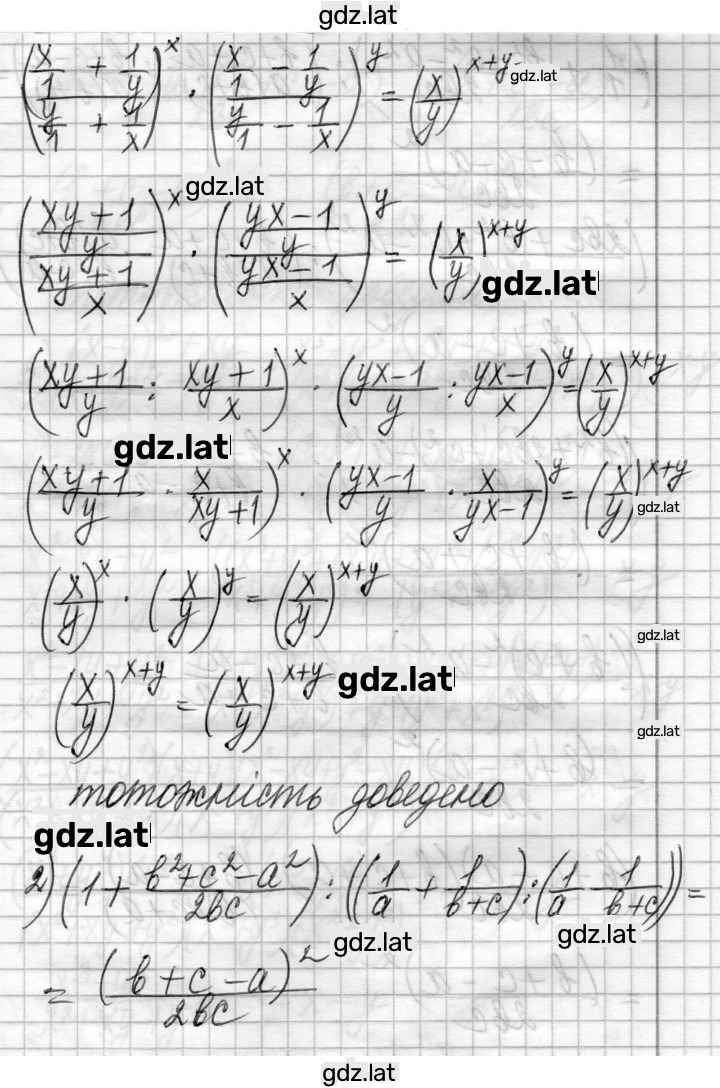 gdz.lat
((x/1 + 1/y)/(y/1 + 1/x))^x · ((x/1 - 1/y)/(y/1 - 1/x))^y = (x/y)^(x+y) gdz.lat
gdz.lat
(((xy+1)/y)/((xy+1)/x))^x · (((yx-1)/y)/((yx-1)/x))^y = (x/y)^(x+y) gdz.lat
((xy+1)/y : (xy+1)/x)^x · ((yx-1)/y : (yx-1)/x)^y = (x/y)^(x+y)
gdz.lat
((xy+1)/y · x/(xy+1))^x · ((yx-1)/y · x/(yx-1))^y = (x/y)^(x+y) gdz.lat
(x/y)^x · (x/y)^y = (x/y)^(x+y)
gdz.lat
(x/y)^(x+y) = (x/y)^(x+y) gdz.lat
gdz.lat
тотожність доведено
gdz.lat
2) (1 + (b²+c²-a²)/(2bc)) : ((1/a + 1/(b+c)) : (1/a - 1/(b+c))) =
gdz.lat gdz.lat
= (b+c-a)²/(2bc)
gdz.lat